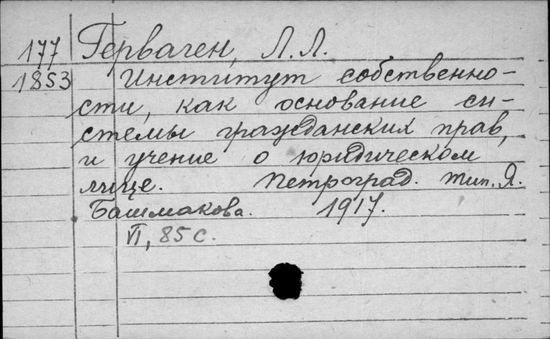 177 Герваген, Л. Л.
1853 Институт собственно-
сти, как основание си-
стемы гражданских прав,
и учение о юридическом
лице. Петроград. тип. Я.
Башмакова. 1917.
VI, 85 с.